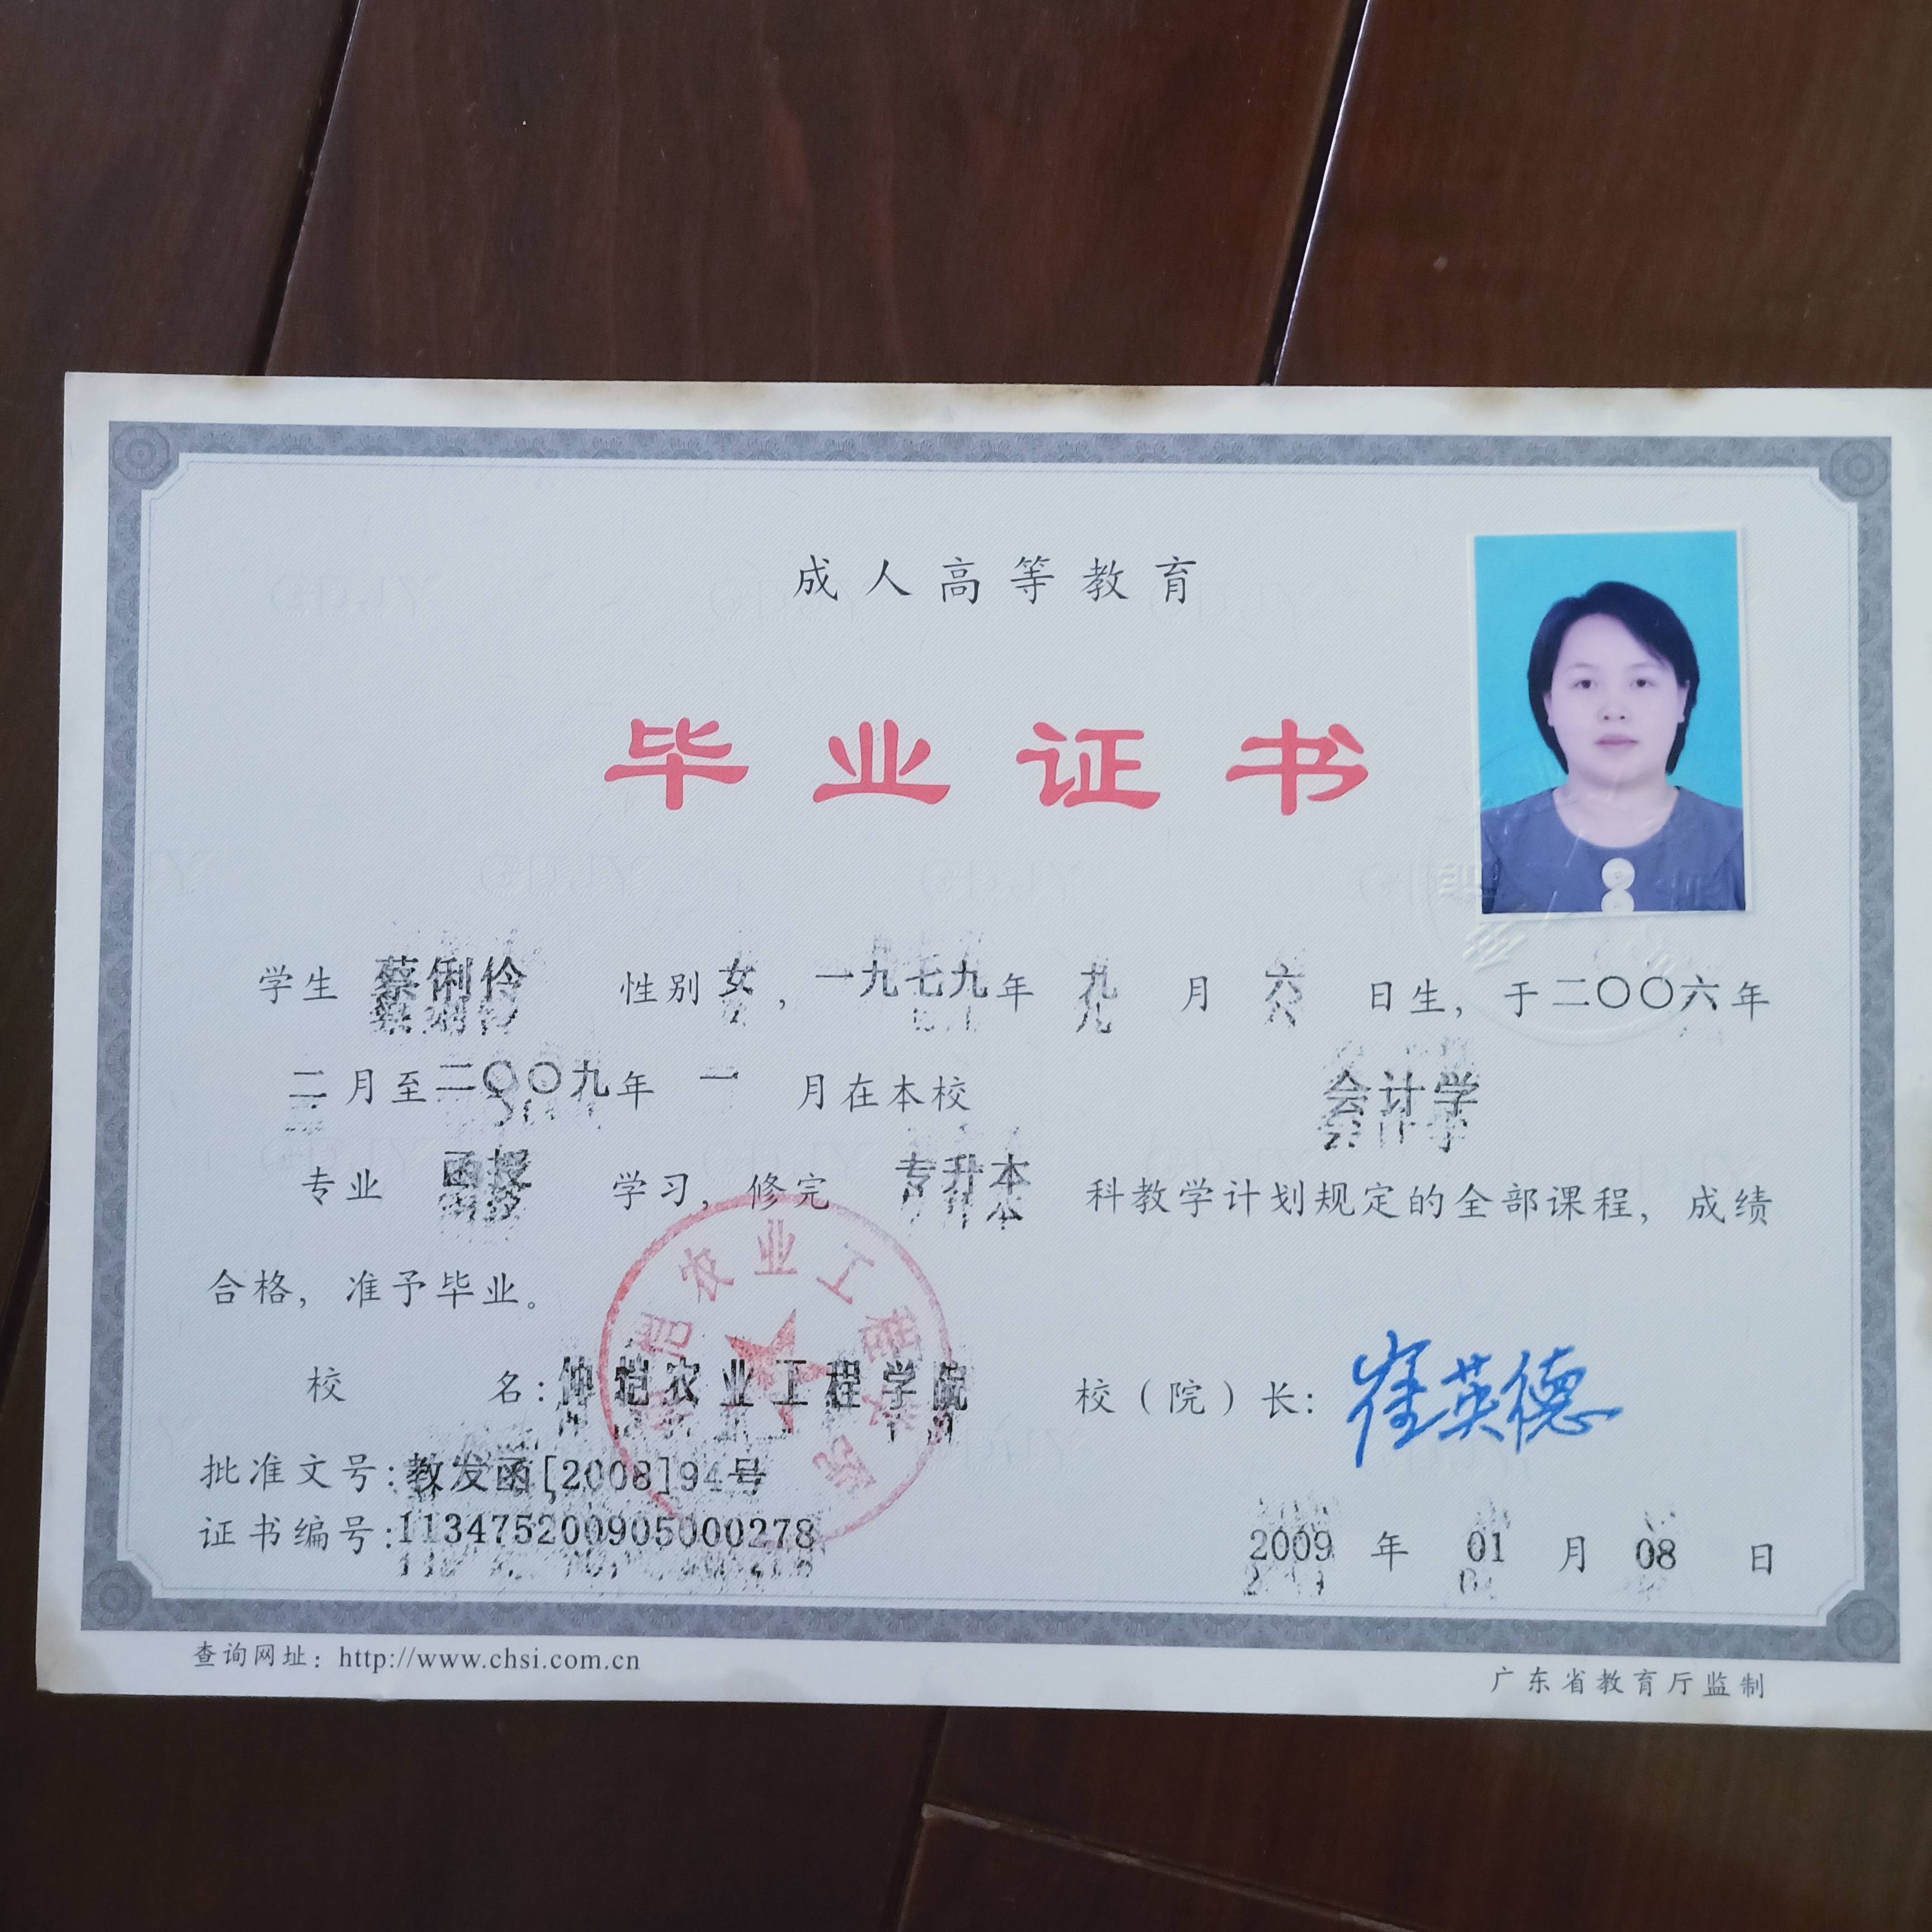 成人高等教育
毕业证书
学生 蔡俐伶 性别 女，一九七九年 九 月 六 日生，于二〇〇六年
二月至二〇〇九年 一 月在本校 会计学
专业 函授 学习，修完 专升本 科教学计划规定的全部课程，成绩
合格，准予毕业。
校 名：仲恺农业工程学院 校（院）长：崔英德
批准文号：教发函[2008]94号
证书编号：113475200905000278
2009 年 01 月 08 日
查询网址：http://www.chsi.com.cn
广东省教育厅监制